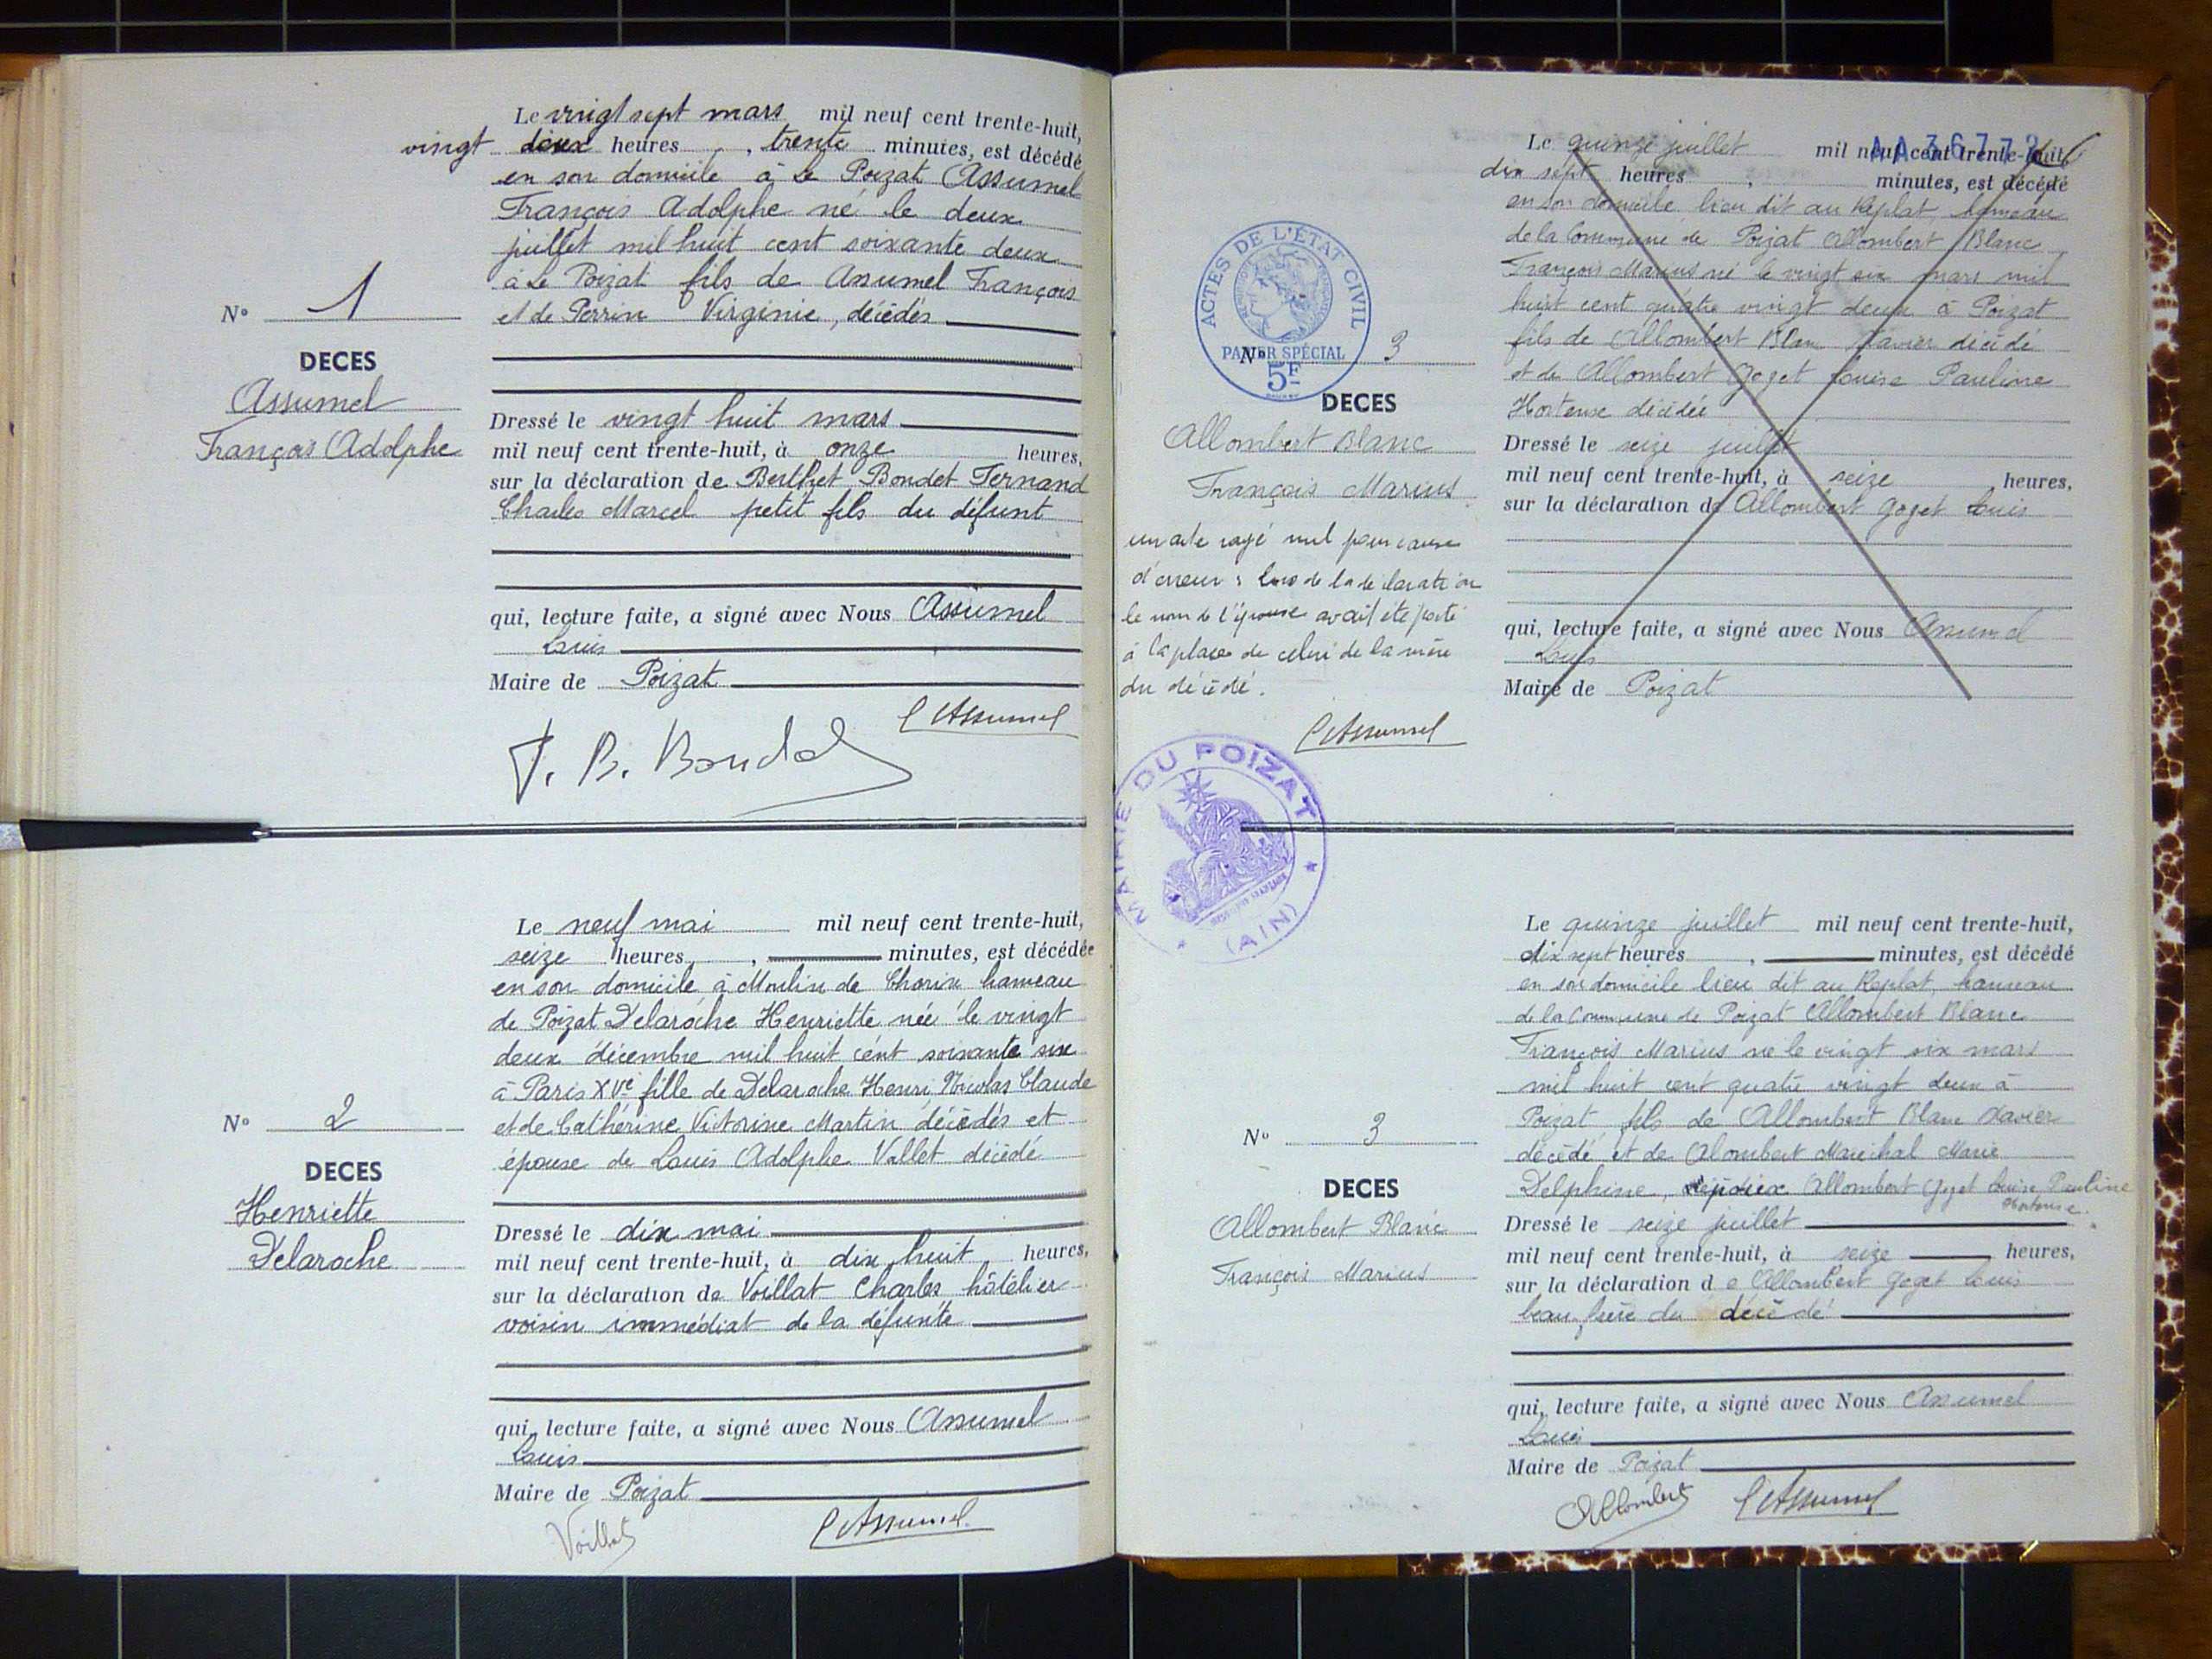 Le vingt sept mars mil neuf cent trente-huit,
vingt deux heures, trente minutes, est décédé
en son domicile à Le Poizat Assumel
François Adolphe né le deux
juillet mil huit cent soixante deux
à Le Poizat fils de Assumel François
et de Perrin Virginie, décédés
N° 1
DECES
Assumel
François Adolphe
Dressé le vingt huit mars
mil neuf cent trente-huit, à onze heures,
sur la déclaration de Berthet Bondet Fernand
Charles Marcel petit fils du défunt
qui, lecture faite, a signé avec Nous Assumel
Louis
Maire de Poizat
L Assumel
F. B. Bondet
Le neuf mai mil neuf cent trente-huit,
seize heures, minutes, est décédée
en son domicile à Moulin de Charix hameau
de Poizat Delaroche Henriette née le vingt
deux décembre mil huit cent soixante six
à Paris XVe fille de Delaroche Henri, Nicolas Claude
et de Cathérine Victorine Martin décédés et
épouse de Louis Adolphe Vallet décédé
N° 2
DECES
Henriette
Delaroche
Dressé le dix mai
mil neuf cent trente-huit, à dix huit heures,
sur la déclaration de Voillat Charles hôtelier
voisin immédiat de la défunte
qui, lecture faite, a signé avec Nous Assumel
Louis
Maire de Poizat
Voillat
L Assumel
AA 36772
Le quinze juillet mil neuf cent trente-huit
dix sept heures, minutes, est décédé
en son domicile lieu dit au Replat, hameau
de la Commune de Poizat Allombert Blanc
François Marius né le vingt six mars mil
huit cent quatre vingt deux à Poizat
fils de Allombert Blanc Xavier décédé
et de Allombert Goget Louise Pauline
Hortense décédée
ACTES DE L'ÉTAT CIVIL
PAPIER SPÉCIAL
5F
N° 3
DECES
Allombert Blanc
François Marius
un acte rayé nul pour cause
d'erreur : lors de la déclaration
le nom de l'épouse avait été porté
à la place de celui de la mère
du décédé.
L Assumel
Dressé le seize juillet
mil neuf cent trente-huit, à seize heures,
sur la déclaration de Allombert Goget Louis
qui, lecture faite, a signé avec Nous Assumel
Louis
Maire de Poizat
MAIRIE DU POIZAT
(AIN)
Le quinze juillet mil neuf cent trente-huit,
dix sept heures, minutes, est décédé
en son domicile lieu dit au Replat, hameau
de la Commune de Poizat Allombert Blanc
François Marius né le vingt six mars
mil huit cent quatre vingt deux à
Poizat fils de Allombert Blanc Xavier
décédé et de Alombert Maréchal Marie
Delphine, époux Allombert Goget Louise Pauline
Hortense.
N° 3
DECES
Allombert Blanc
François Marius
Dressé le seize juillet
mil neuf cent trente-huit, à seize heures,
sur la déclaration de Allombert Goget Louis
beau-frère du décédé
qui, lecture faite, a signé avec Nous Assumel
Louis
Maire de Poizat
Allombert
L Assumel